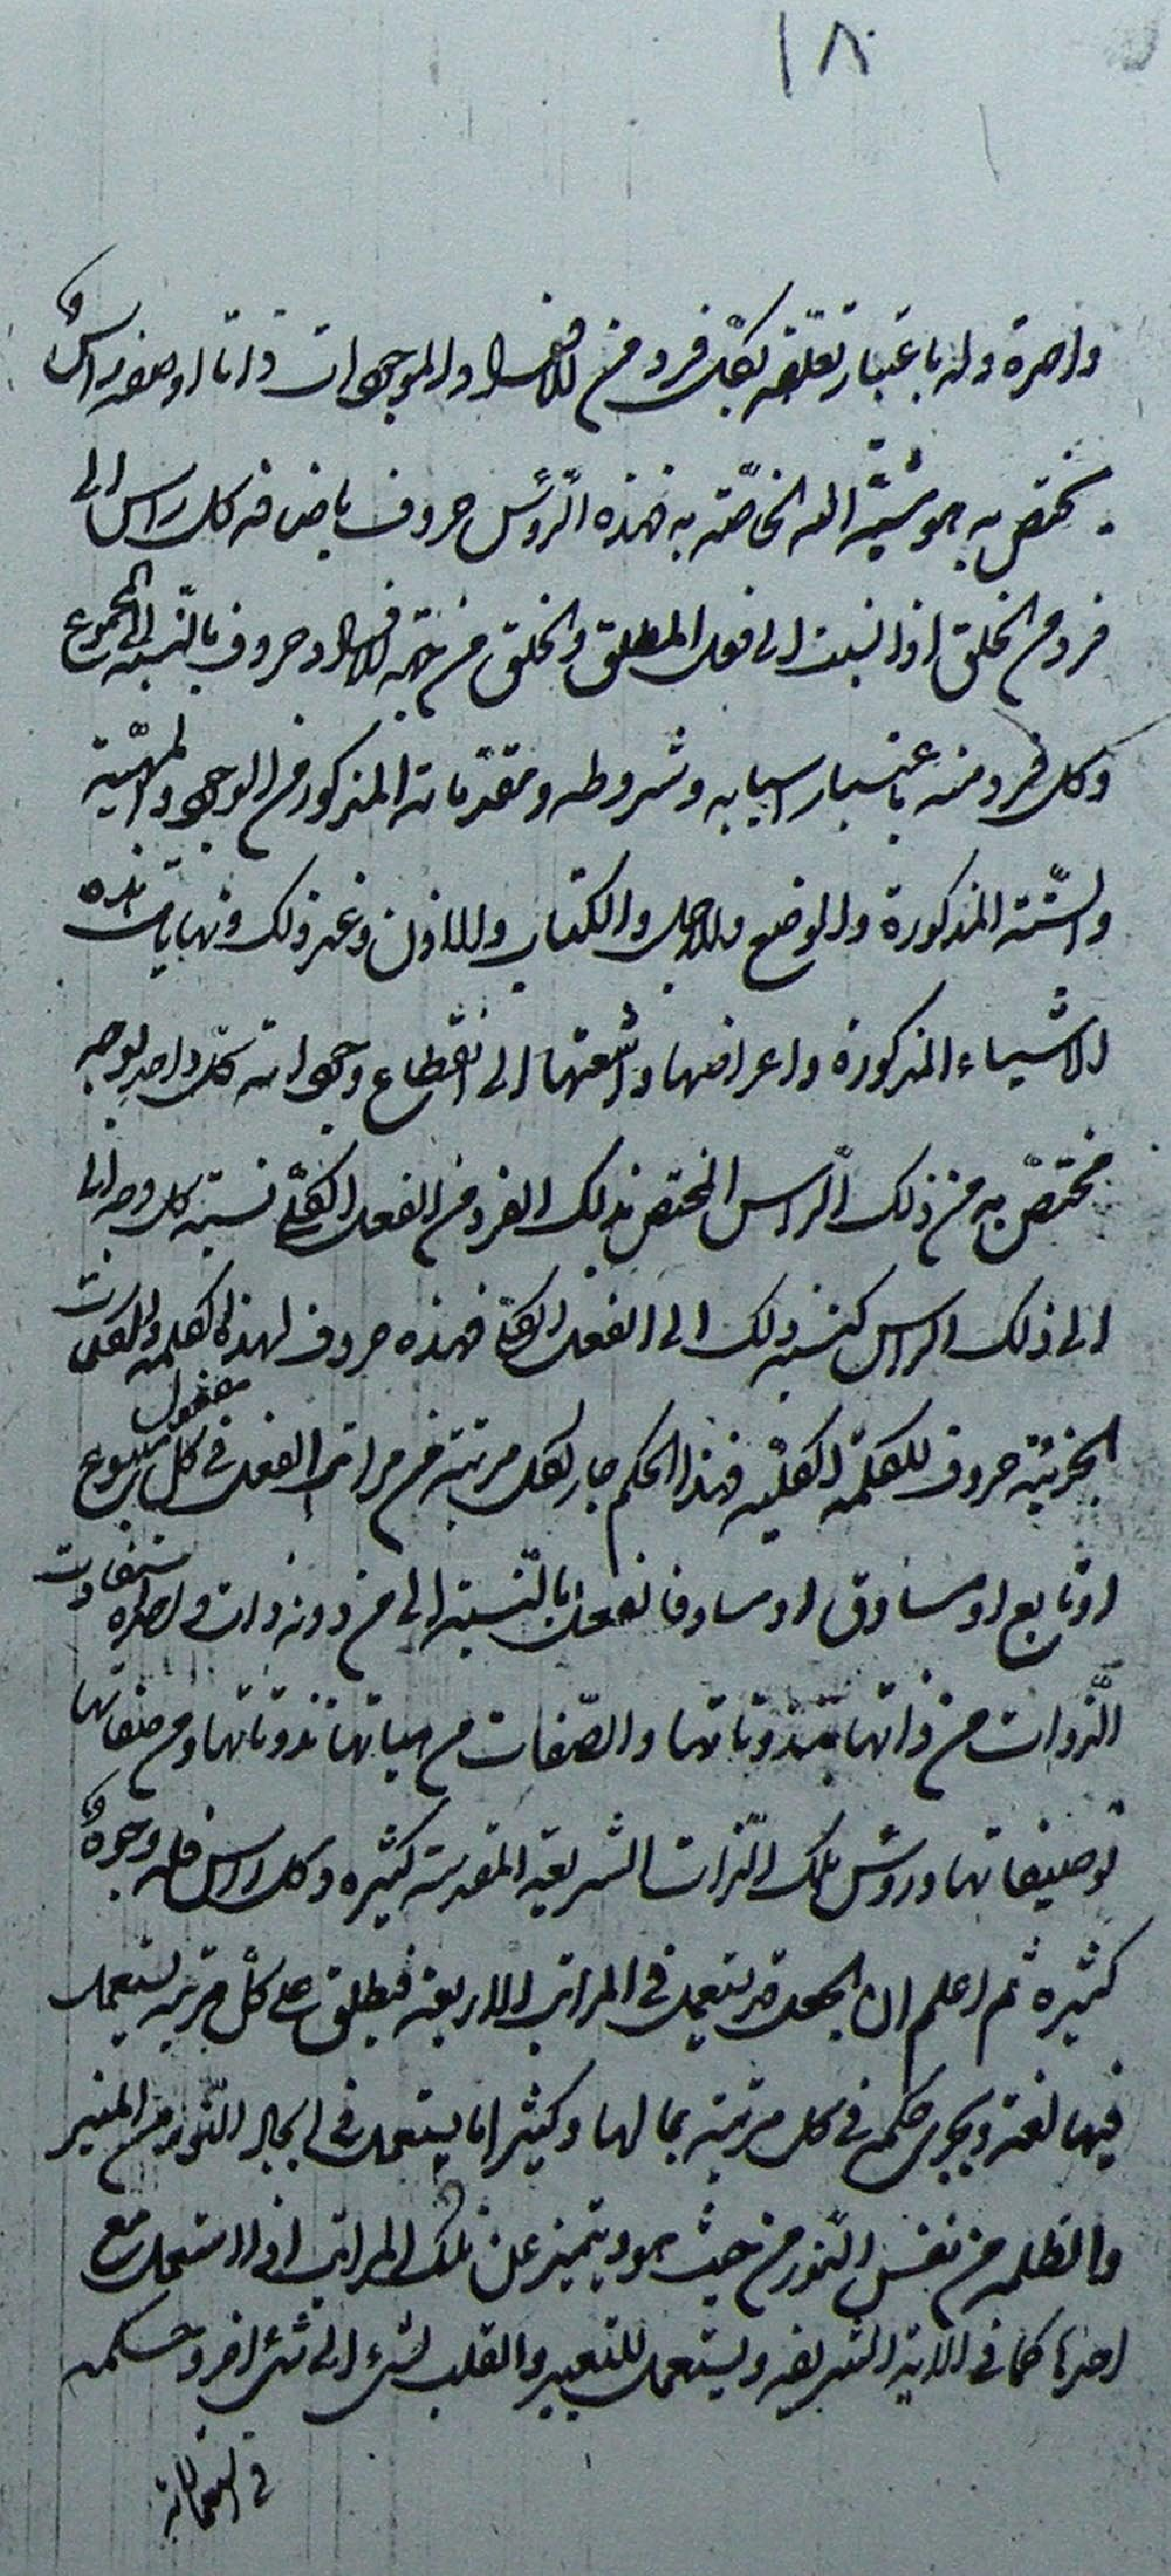 ١٨٠
واحدة وله باعتبار تعلقه بكل فرد من الافراد والموجودات ذاتا او صفة راس و
يختص به هو مشيّة الله الخاصّة به فهذه الرّؤس حروف باضافه كل راس الى
فرد من الخلق اذا نسبت الى فعل المطلق والخلق من جهة الافراد حروف بالنّسبة الى المجموع
وكل فرد منه باعتبار اسبابه وشروطه ومقدّماته المذكورة من الوجود والمهيّة
والسّتّة المذكورة والوضع والاجل والكتاب والاذن وغير ذلك ونهايات هذه
الاشياء المذكورة واعراضها واشعتها الى انقطاع وجوداته كلّ واحد بوجه
مختصّ به من ذلك الرّاس المختص بذلك الفرد من الفعل الكلّى نسبته كل وجه الى
الى ذلك الراس كنسبة ذلك الى الفعل الكلّى فهذه حروف لهذا الكلمة والكلمات
الجزئية حروف للكلمة الكليّة فهذا الحكم جار لكل مرتبة من مراتب الفعل فى كل مفعول متبوع
او تابع او مساوق او مساو فالفعل بالنّسبة الى من دونه ذات واحدة تذوّتت
الذّوات من ذاتها بتذوتاتها والصّفات من هيئاتها تذوتاتها ومن صفاتها
توصيفاتها ورؤس تلك الذّات الشريفة المقدسة كثيره وكل راس فله وجوهٌ و
كثيرة ثم اعلم ان الجعل قد يستعمل فى المراتب الاربعة فيطلق على كلّ مرتبة يستعمل
فيها لغة ويجرى حكمه فى كل مرتبة بما لها وكثيرا ما يستعمل فى ايجاد النّور من المنير
والظلمة من نفس النّور من حيث هو ويتميز عن تلك المراتب اذا استعمل مع
احدها كما فى الاية الشريفه ويستعمل للتعيير والقلب لشئ الى شئ اخر وحكمه
فى